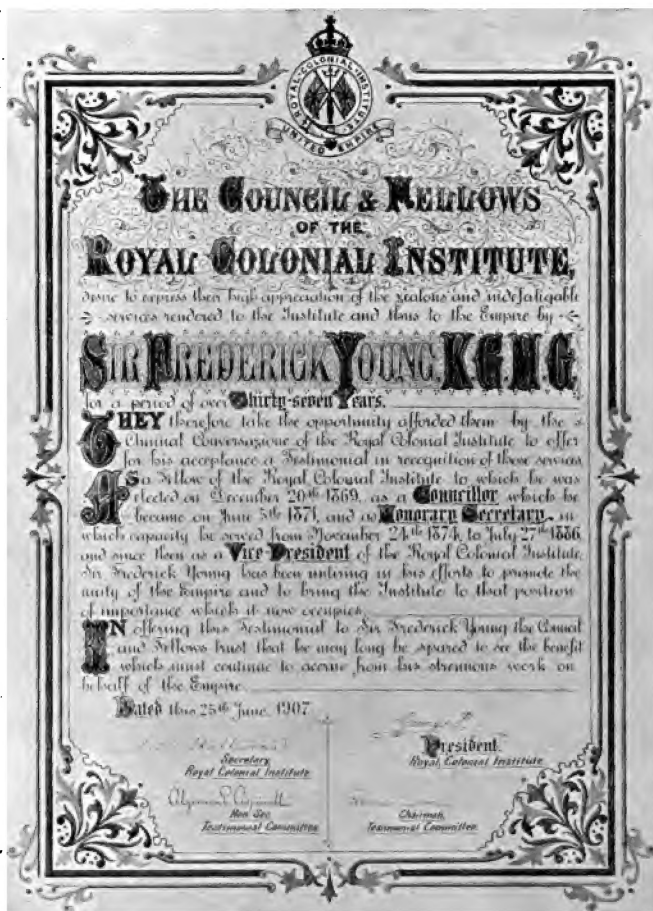 ROYAL · COLONIAL · INSTITUTE
UNITED EMPIRE
THE COUNCIL & FELLOWS
OF THE
ROYAL COLONIAL INSTITUTE,
desire to express their high appreciation of the zealous and indefatigable
services rendered to the Institute and thus to the Empire by
SIR FREDERICK YOUNG, K.C.M.G.
for a period of over Thirty-seven Years.
THEY therefore take the opportunity afforded them by the
Annual Conversazione of the Royal Colonial Institute to offer
for his acceptance a Testimonial in recognition of these services.
AS a Fellow of the Royal Colonial Institute to which he was
elected on December 20th 1869, as a Councillor which he
became on June 5th 1871, and as Honorary Secretary in
which capacity he served from November 24th 1874, to July 27th 1886
and since then as a Vice-President of the Royal Colonial Institute,
Sir Frederick Young has been untiring in his efforts to promote the
unity of the Empire and to bring the Institute to that position
of importance which it now occupies.
IN offering this Testimonial to Sir Frederick Young the Council
and Fellows trust that he may long be spared to see the benefit
which must continue to accrue from his strenuous work on
behalf of the Empire
Dated this 25th June, 1907
George P.
President.
Secretary
Royal Colonial Institute.
Royal Colonial Institute
Algernon E. Aspinall
Hon Sec
Chairman,
Testimonial Committee.
Testimonial Committee.